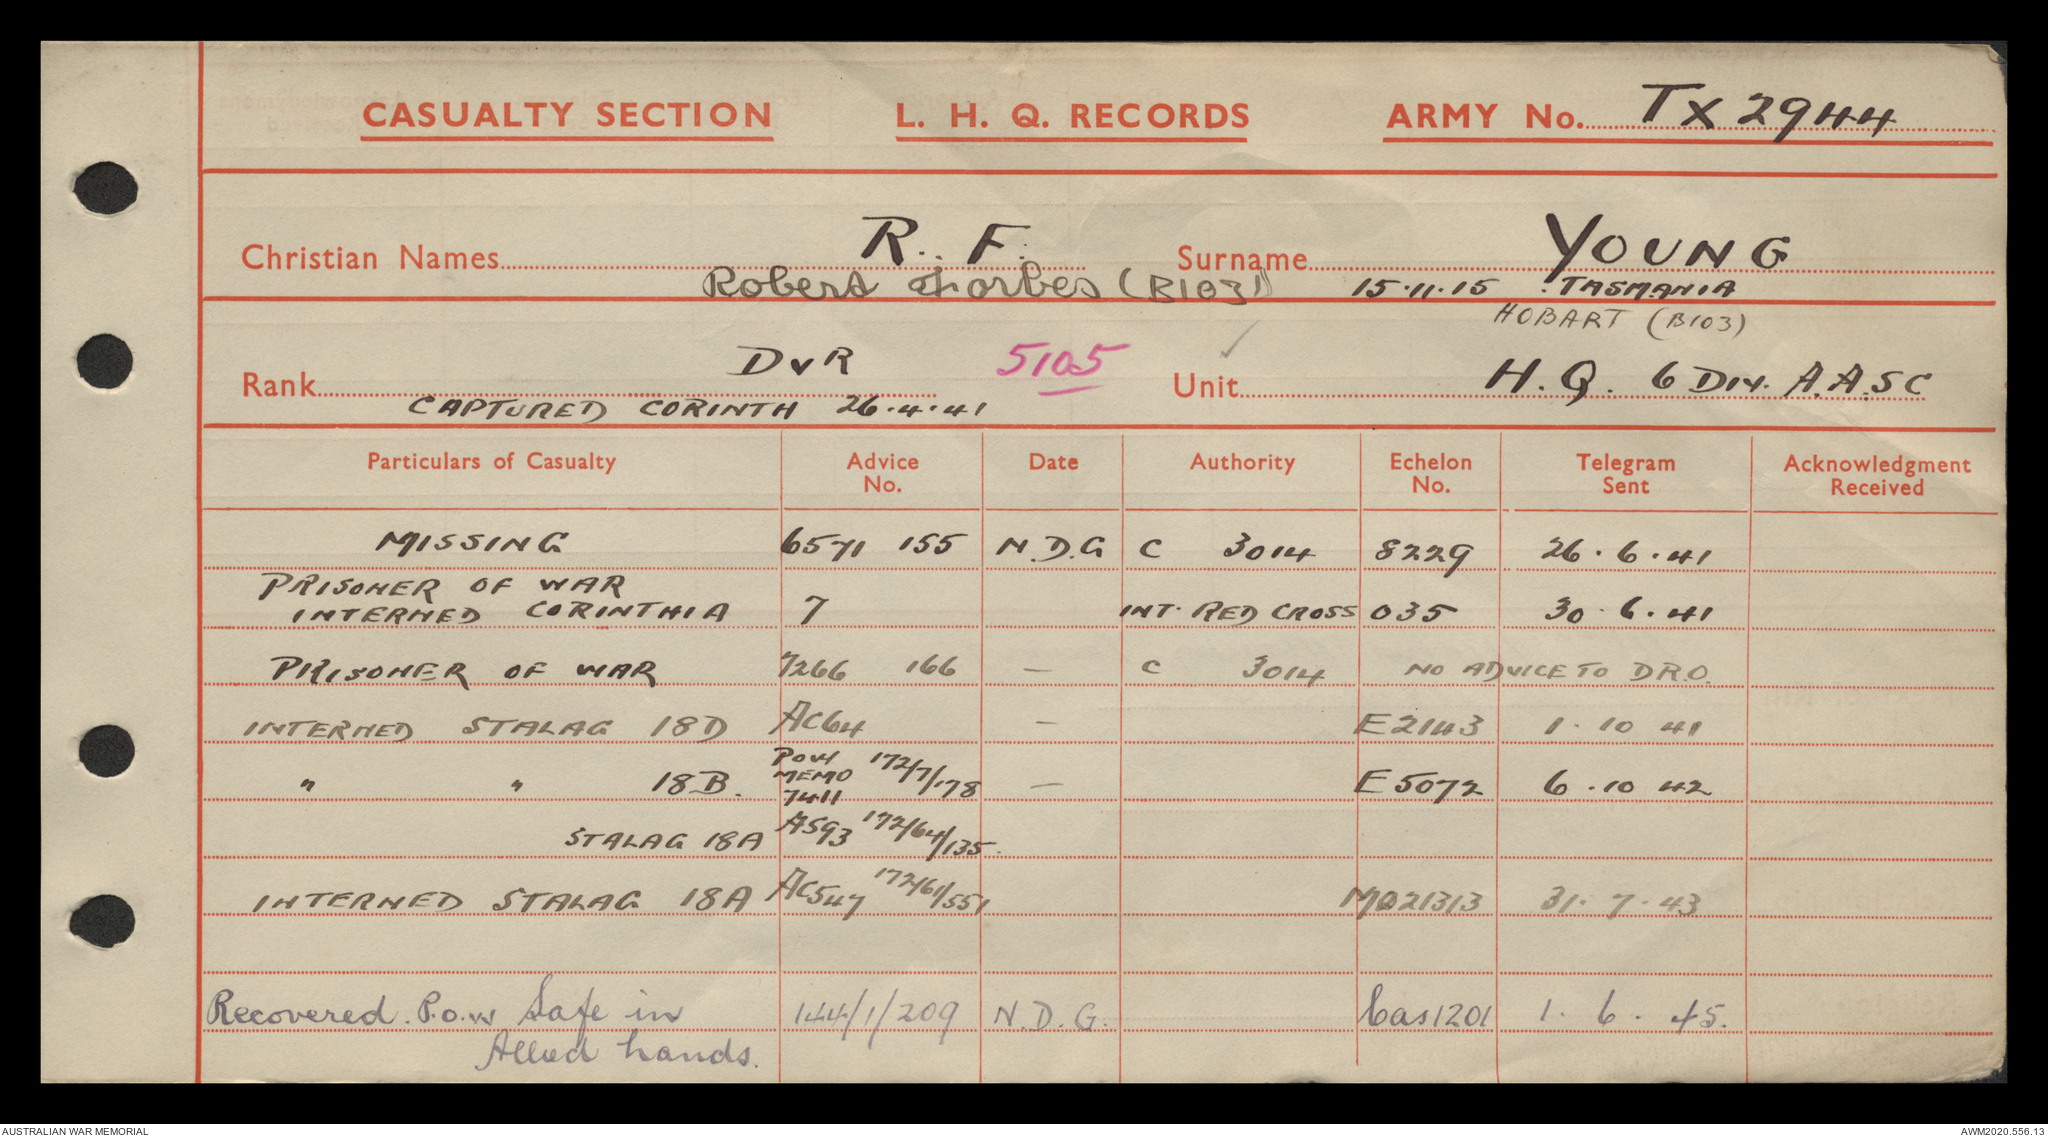 CASUALTY SECTION L. H. Q. RECORDS ARMY No. TX 2944
Christian Names R. F. Surname YOUNG
Robert Forbes (B103) 15.11.15 TASMANIA
HOBART (B103)
Rank DVR 5105 Unit H.Q. 6 DIV. A.A.S C
CAPTURED CORINTH 26.4.41
Particulars of Casualty Advice No. Date Authority Echelon No. Telegram Sent Acknowledgment Received
MISSING 6571 155 N.D.G C 3014 8229 26.6.41
PRISONER OF WAR
INTERNED CORINTHIA 7 INT. RED CROSS 035 30.6.41
PRISONER OF WAR 7266 166 — C 3014 NO ADVICE TO D.R.O.
INTERNED STALAG 18D AC64 — E2143 1.10 41
" " 18B. POW MEMO 7411 172/7/178 — E5072 6.10 42
STALAG 18A AS93 172/64/135.
INTERNED STALAG 18A AC547 172/61/551 MQ21313 31.7.43
Recovered. P.o.w Safe in 144/1/209 N.D.G. Cas1201 1.6.45.
Allied hands.
AUSTRALIAN WAR MEMORIAL AWM2020.556.13